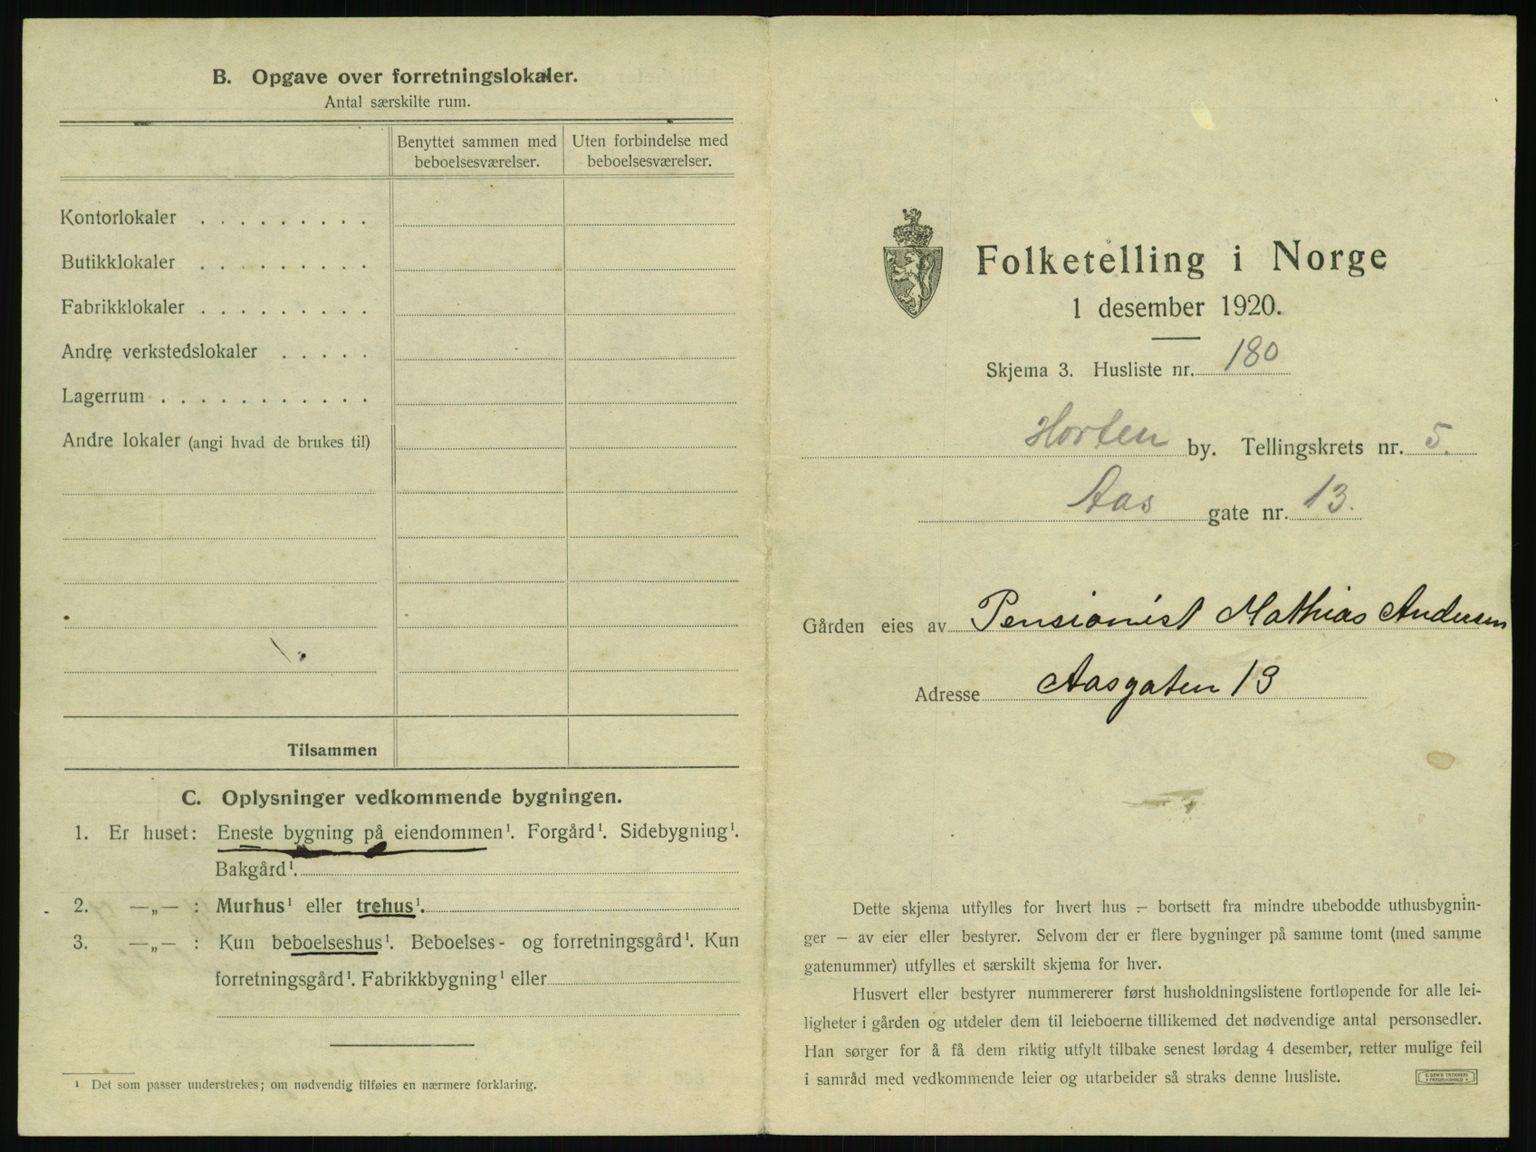 B. Opgave over forretningslokaler.
Antal særskilte rum.
Benyttet sammen med beboelsesværelser.
Uten forbindelse med beboelsesværelser.
Kontorlokaler . . . . . . . . .
Butikklokaler . . . . . . . . .
Fabrikklokaler . . . . . . . . .
Andre verkstedslokaler . . . . .
Lagerrum . . . . . . . . . . .
Andre lokaler (angi hvad de brukes til)
Tilsammen
C. Oplysninger vedkommende bygningen.
1. Er huset: Eneste bygning på eiendommen¹. Forgård¹. Sidebygning¹.
Bakgård¹.
2. —„— : Murhus¹ eller trehus¹.
3. —„— : Kun beboelseshus¹. Beboelses- og forretningsgård¹. Kun
forretningsgård¹. Fabrikkbygning¹ eller
¹ Det som passer understrekes; om nødvendig tilføies en nærmere forklaring.
Folketelling i Norge
1 desember 1920.
Skjema 3. Husliste nr. 180
Horten by. Tellingskrets nr. 5.
Aas gate nr. 13.
Gården eies av Pensionist Mathias Andersen
Adresse Aasgaten 13
Dette skjema utfylles for hvert hus — bortsett fra mindre ubebodde uthusbygnin-
ger — av eier eller bestyrer. Selvom der er flere bygninger på samme tomt (med samme
gatenummer) utfylles et særskilt skjema for hver.
Husvert eller bestyrer nummererer først husholdningslistene fortløpende for alle lei-
ligheter i gården og utdeler dem til leieboerne tillikemed det nødvendige antal personsedler.
Han sørger for å få dem riktig utfylt tilbake senest lørdag 4 desember, retter mulige feil
i samråd med vedkommende leier og utarbeider så straks denne husliste.